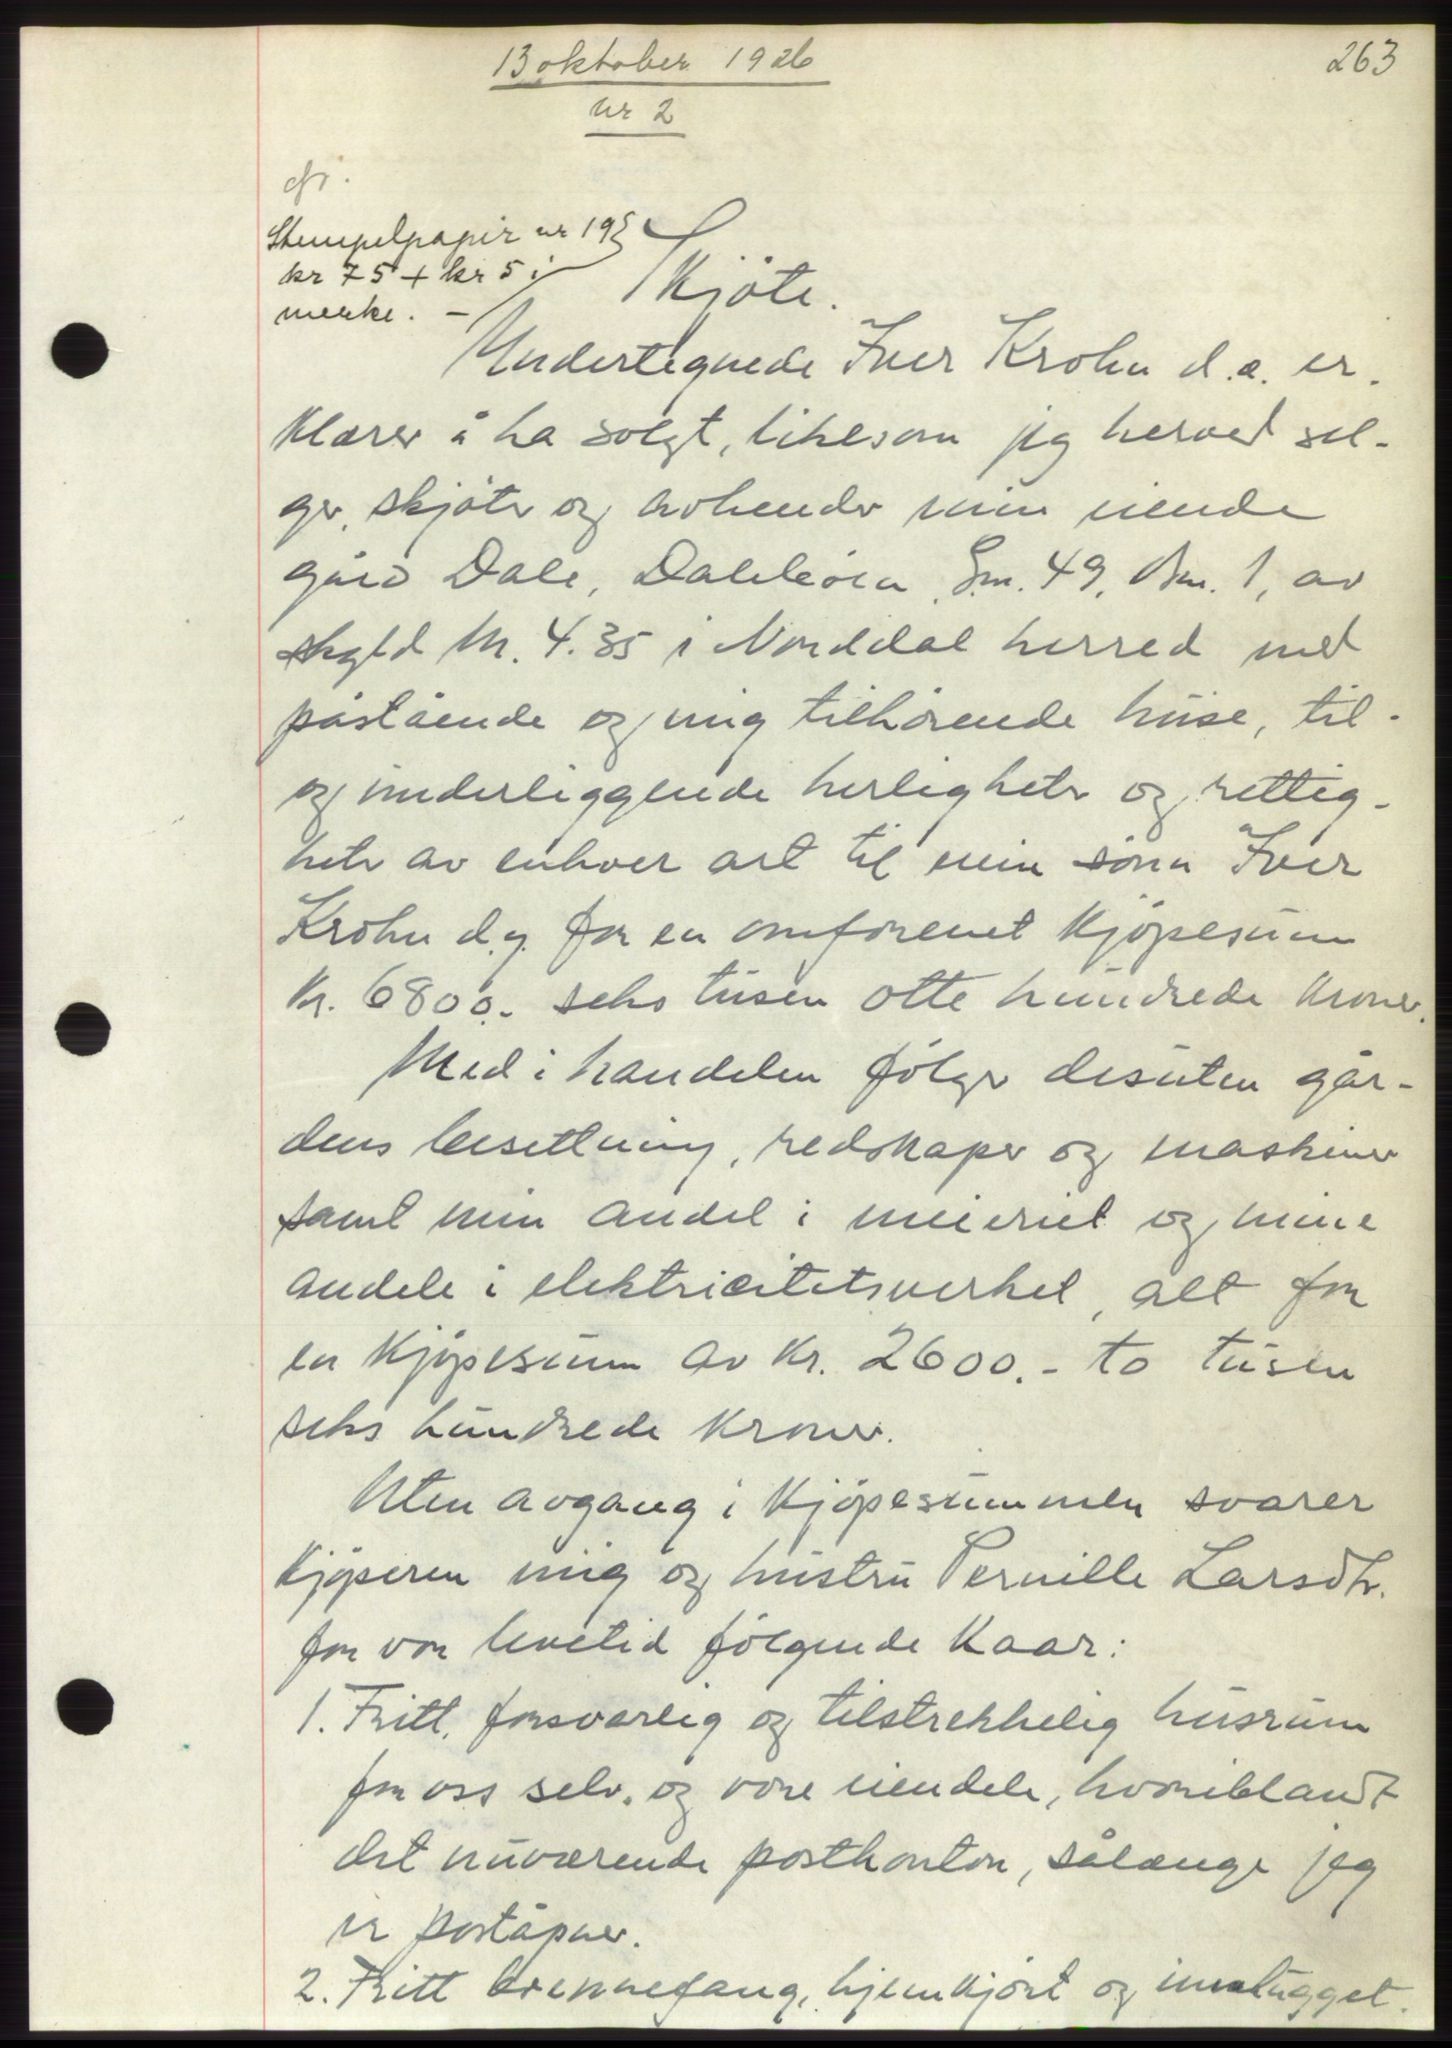 13 oktober 1926
263
nr 2
cfr.
Stempelpapir nr 195
kr 75 + kr 5 i
merke. -
Skjöte.
Undertegnede Iver Krohn d.e. er-
klærer å ha solgt, likesom jeg herved sel-
ger, skjöter og avhender min eiende
gård Dale, Daleböen, Gnr. 49, Bnr. 1, av
skyld M. 4.35 i Norddal herred med
påstående og mig tilhörende huse, til-
og underliggende herligheter og rettig-
heter av enhver art til min sönn Iver
Krohn d.y. for en omforenet kjöpesum
kr. 6800.- seks tusen otte hundrede kroner.
Med i handelen fölger desuten går-
dens besetning, redskaper og maskiner
samt min andel i meieriet og mine
andele i elektricitetsverket, alt for
en kjöpesum av kr. 2600.- to tusen
seks hundrede kroner.
Uten avgang i kjöpesummen svarer
kjöperen mig og hustru Pernille Larsdtr.
for vor levetid fölgende kaar:
1. Fritt, forsvarlig og tilstrekkelig husrum
for oss selv og vore eiendele, hvoriblandt
det nuværende postkontor, sålenge jeg
er poståpner.
2. Fritt brennefang, hjemkjört og innhugget.